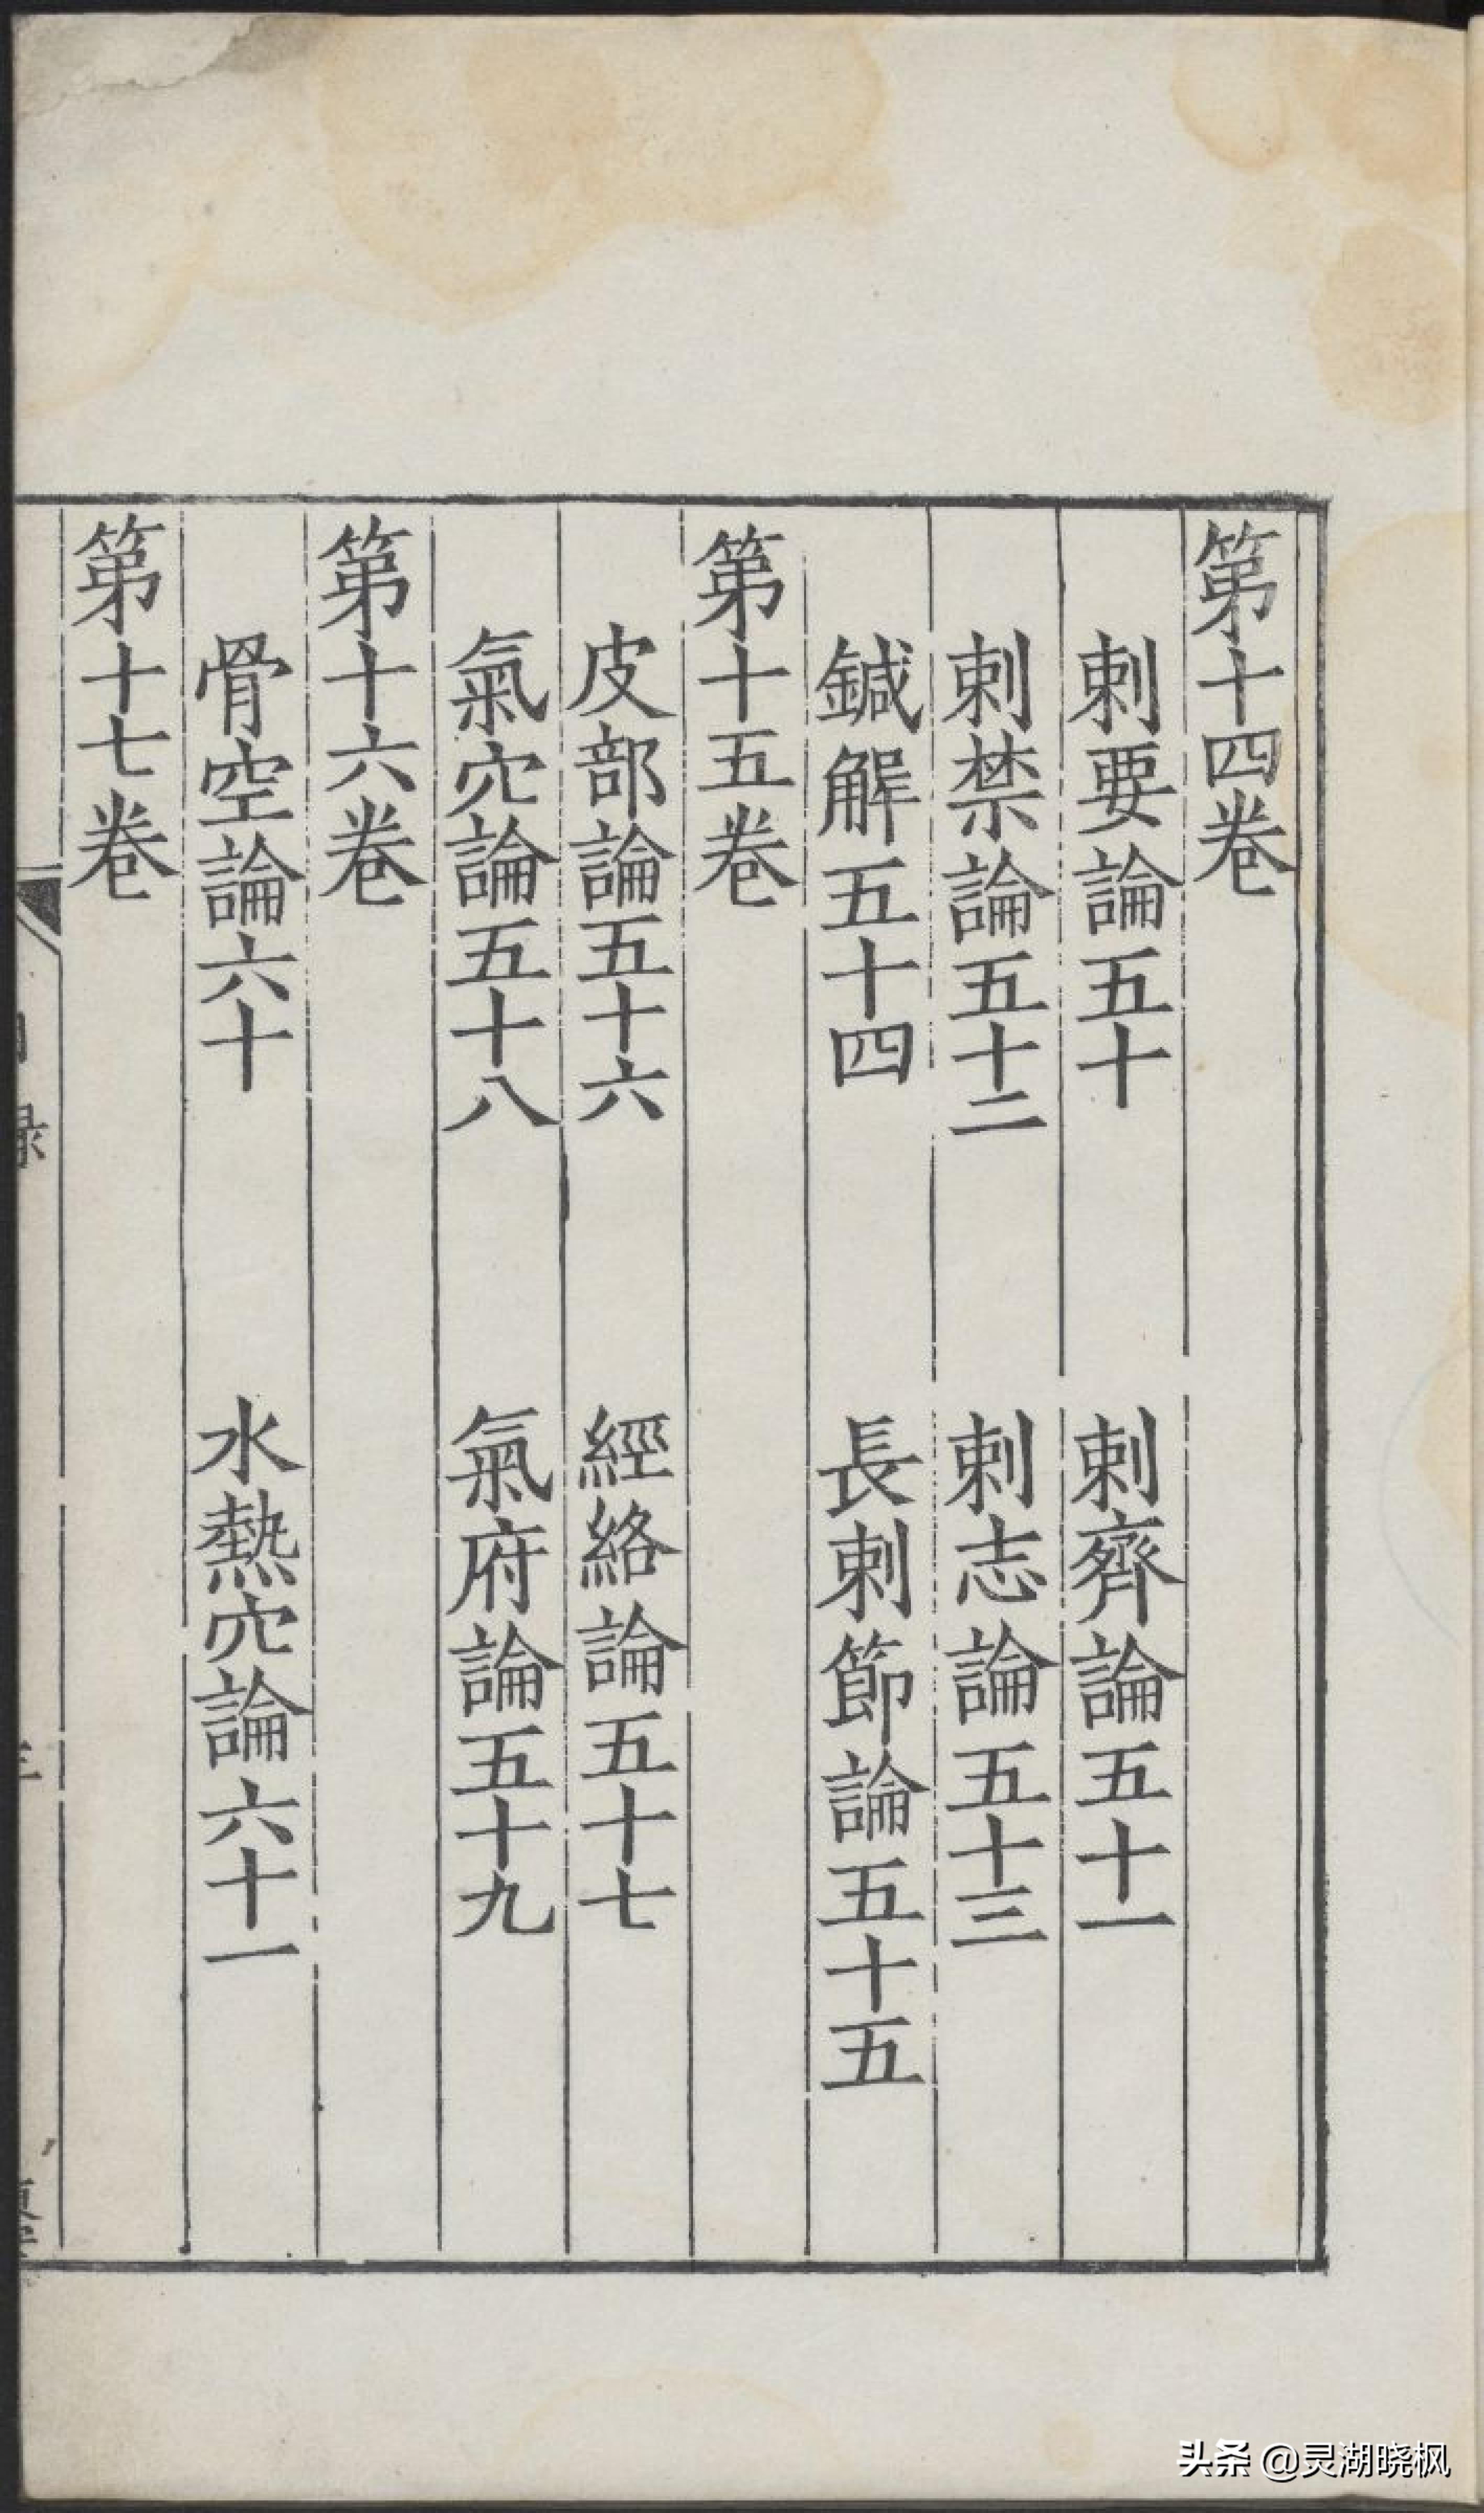 第十四卷
刺要論五十 刺齊論五十一
刺禁論五十二 刺志論五十三
鍼解五十四 長刺節論五十五
第十五卷
皮部論五十六 經絡論五十七
氣穴論五十八 氣府論五十九
第十六卷
骨空論六十 水熱穴論六十一
第十七卷
头条 @灵湖晓枫